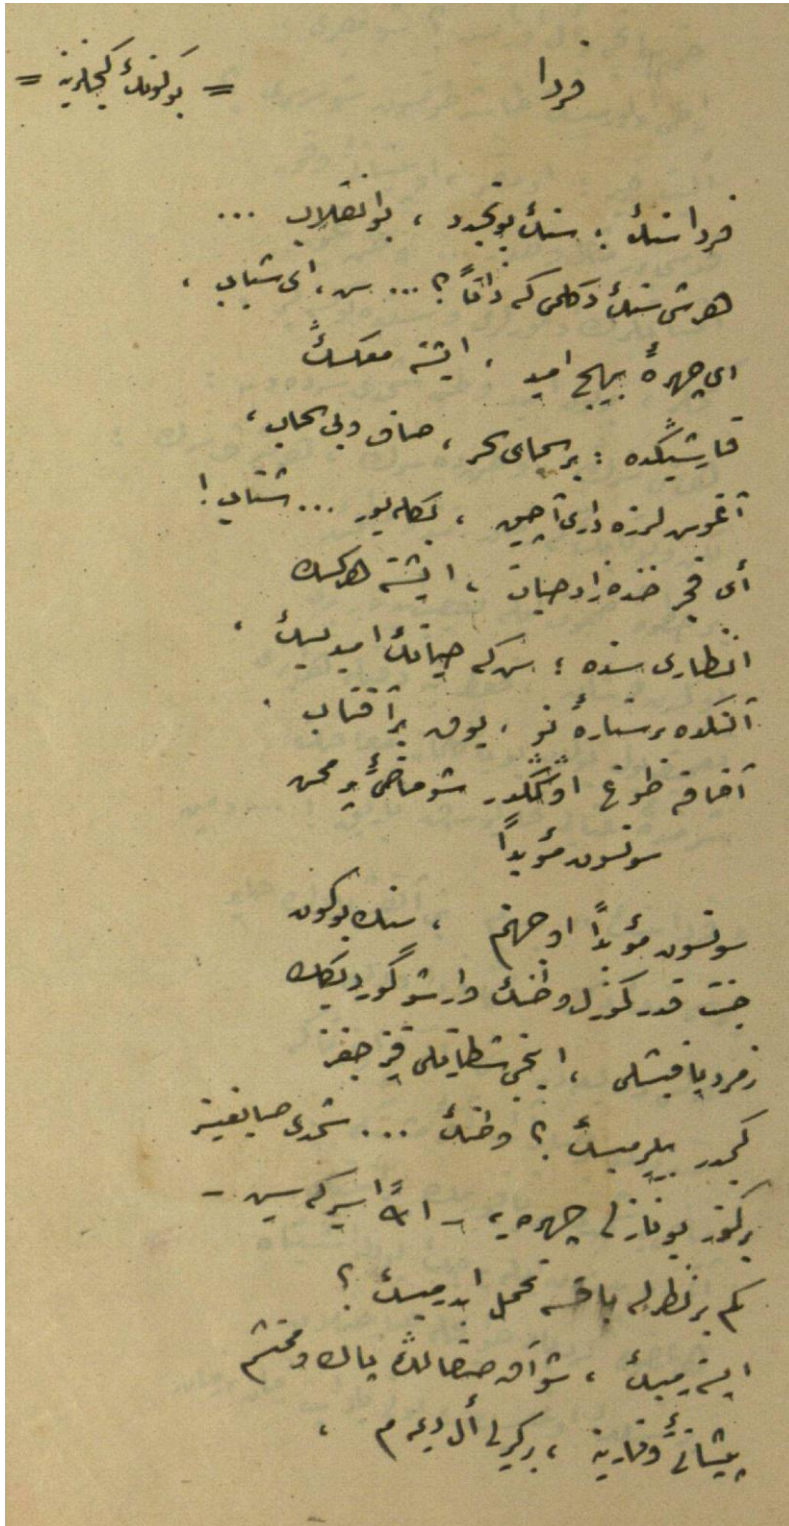 فردا
= بوكونك كنجلرينه =
فردا سنك ؛ سنك بو تجدد ، بو انقلاب ...
هر شی سنك دكلمی كه ذاتاً ؟ ... سن ، ای شباب ،
ای چهرهٔ بهیج امید ، ایشته معكسك
قارشیكده : بر سمای سحر ، صاف و بی سحاب ،
آغوش لرزه داری آچیق ، بكله یور ... شتاب !
ای فجر خنده زاد حیات ، ایشته هركسك
انظاری سنده ؛ سن كه حیاتك امیدیسك ،
آلنكده بر ستارهٔ نو ، یوق بر آفتاب .
آفاقه طوغ ، اوكڭده شو ماضئ پر محن
سونسون مؤبداً
سونسون مؤبداً او جهنم ، سنك بوكون
جنت قدر كوزل وطنك وار شو گوردیكك
زمرد باقیشلی ، اینجی شطارتلی قیزجغز
كیمدر بیلیرمیسك ؟ وطنك ... شمدی صایغیسز
بر كوز بو نازلی چهره یه - الله اسیركه سین -
كم بر نظرله باقسه تحمل ایدرمیسك ؟
ایسترمیسك ، شو آق صقاللنك پاك و محتشم
پیشانئ وقارینه ، بر كیرلی أل دیمم ،